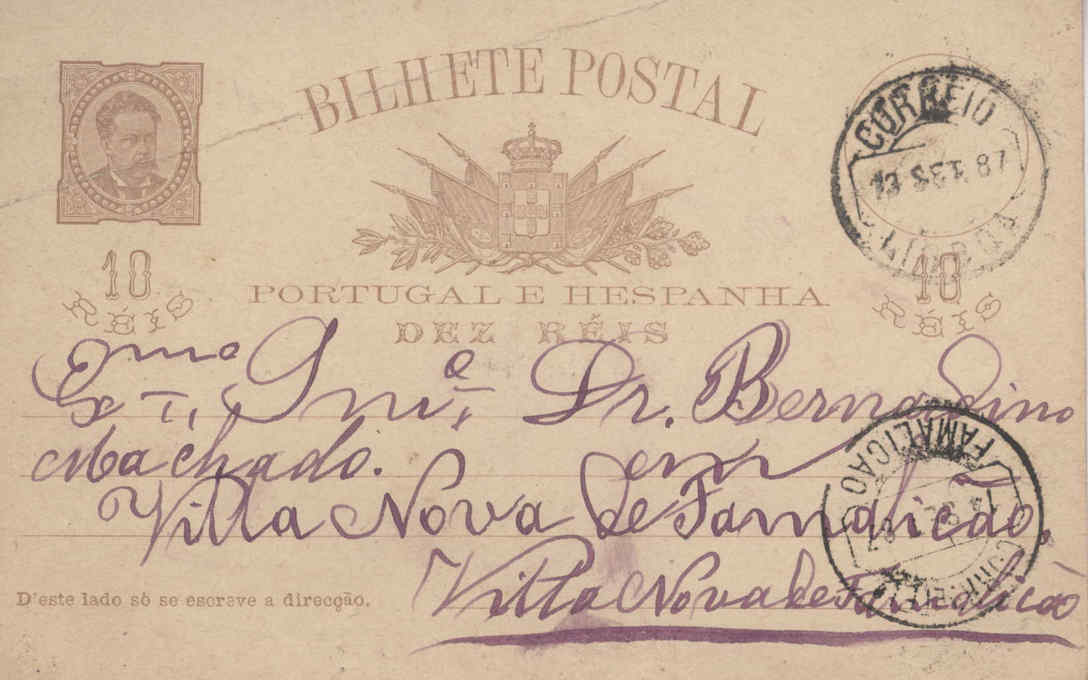 BILHETE POSTAL
CORREIO
13 SET 87
LISBOA
10
RÉIS
PORTUGAL E HESPANHA
DEZ RÉIS
10
RÉIS
Exmo Dr. Bernardino
Machado. em
Villa Nova de Famalicão.
Villa Nova de Famalicão
D'este lado só se escreve a direcção.
FAMALICÃO
CORREIO